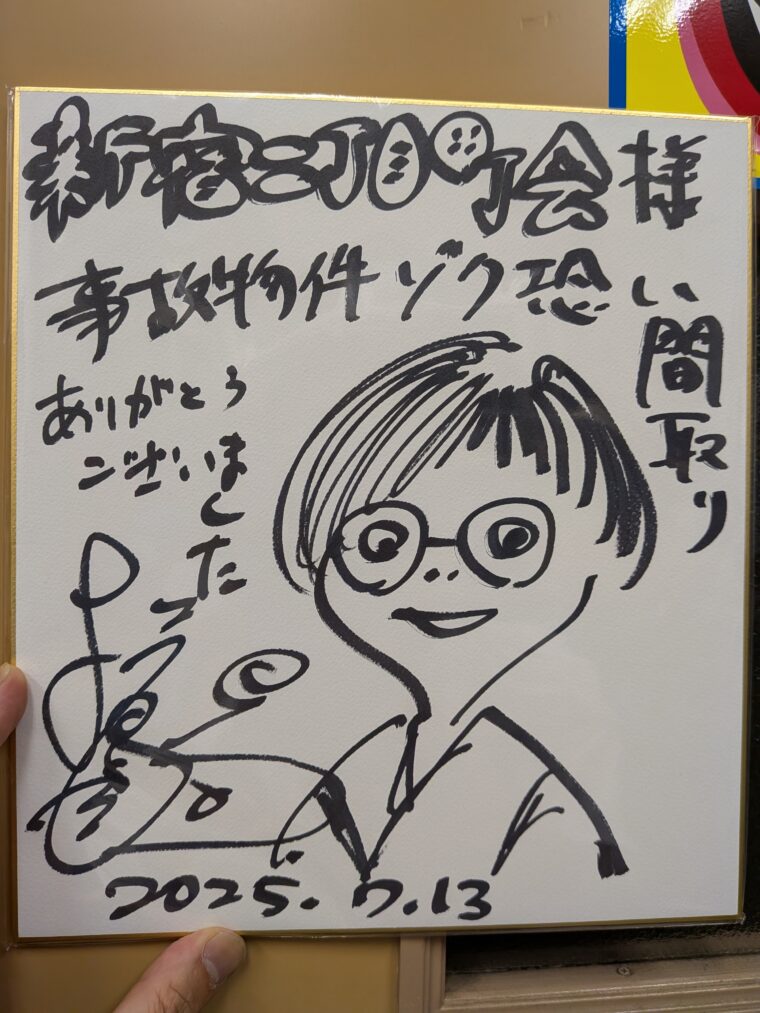 新宿三丁目町会様
事故物件ゾク恐い間取り
ありがとう
ございました
2025.7.13